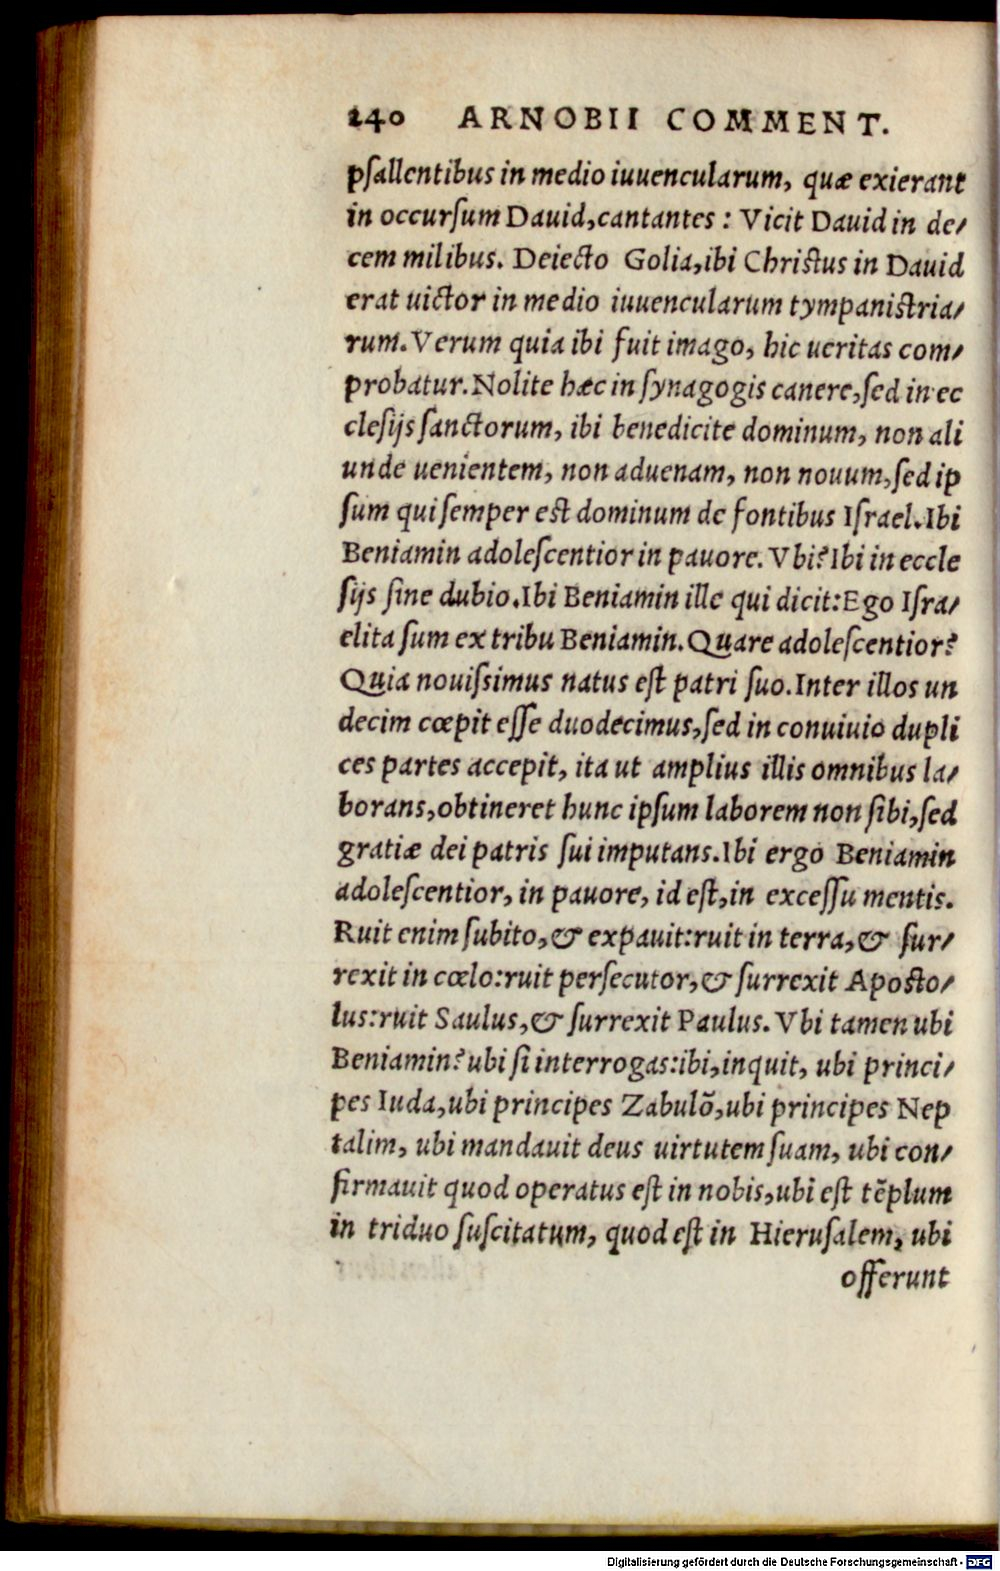 240 ARNOBII COMMENT.
pſallentibus in medio iuuencularum, quæ exierant
in occurſum Dauid, cantantes : Vicit Dauid in de/
cem milibus. Deiecto Golia, ibi Chriſtus in Dauid
erat uictor in medio iuuencularum tympaniſtria/
rum. Verum quia ibi fuit imago, hic ueritas com/
probatur. Nolite hæc in ſynagogis canere, ſed in ec
cleſijs ſanctorum, ibi benedicite dominum, non ali
unde uenientem, non aduenam, non nouum, ſed ip
ſum qui ſemper eſt dominum de fontibus Iſrael. Ibi
Beniamin adoleſcentior in pauore. Vbi? Ibi in eccle
ſijs ſine dubio. Ibi Beniamin ille qui dicit: Ego Iſra/
elita ſum ex tribu Beniamin. Quare adoleſcentior?
Quia nouiſsimus natus eſt patri ſuo. Inter illos un
decim cœpit eſſe duodecimus, ſed in conuiuio dupli
ces partes accepit, ita ut amplius illis omnibus la/
borans, obtineret hunc ipſum laborem non ſibi, ſed
gratiæ dei patris ſui imputans. Ibi ergo Beniamin
adoleſcentior, in pauore, id eſt, in exceſſu mentis.
Ruit enim ſubito, & expauit: ruit in terra, & ſur/
rexit in cœlo: ruit perſecutor, & ſurrexit Apoſto/
lus: ruit Saulus, & ſurrexit Paulus. Vbi tamen ubi
Beniamin? ubi ſi interrogas: ibi, inquit, ubi princi/
pes Iuda, ubi principes Zabulõ, ubi principes Nep
talim, ubi mandauit deus uirtutem ſuam, ubi con/
firmauit quod operatus eſt in nobis, ubi eſt tẽplum
in triduo ſuſcitatum, quod eſt in Hieruſalem, ubi
offerunt
Digitalisierung gefördert durch die Deutsche Forschungsgemeinschaft - DFG